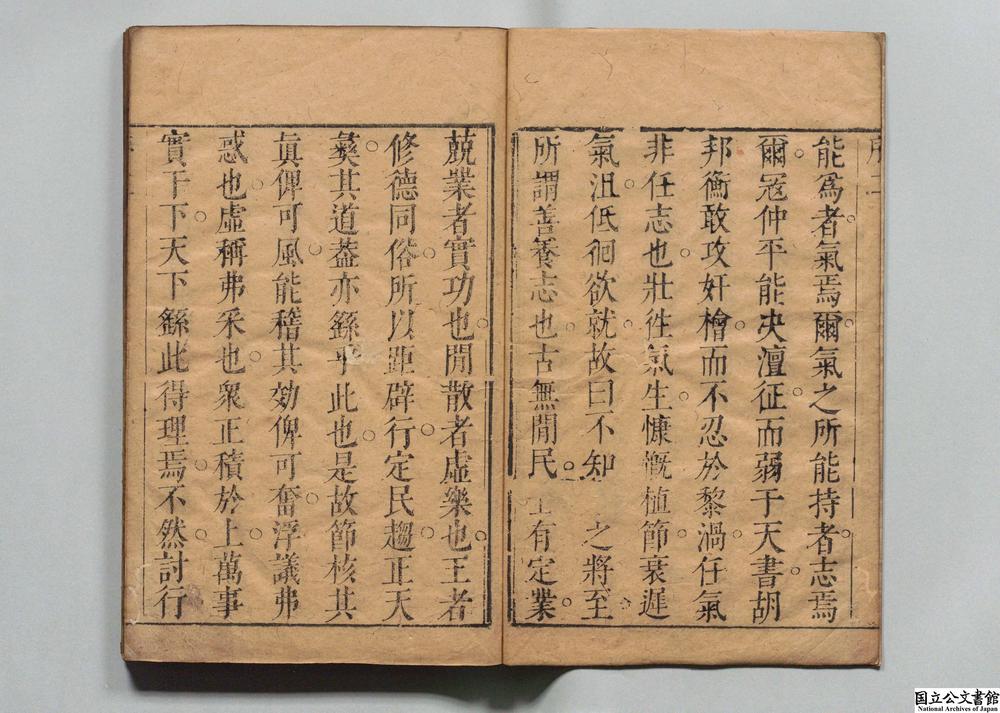 能爲者氣焉爾氣之所能持者志焉
爾寇仲平能决澶征而弱于天書胡
邦衡敢攻奸檜而不忍於黎渦任氣
非任志也壯徃氣生慷慨植節衰遲
氣沮低徊欲就故曰不知 之將至
所謂善養志也古無閒民 有定業
兢業者實功也閒散者虛樂也王者
修德同俗所以距辟行定民趨正天
彞其道葢亦繇乎此也是故節核其
眞俾可風能稽其効俾可奮浮議弗
惑也虛稱弗采也衆正積於上萬事
實于下天下繇此得理焉不然討行
国立公文書館
National Archives of Japan